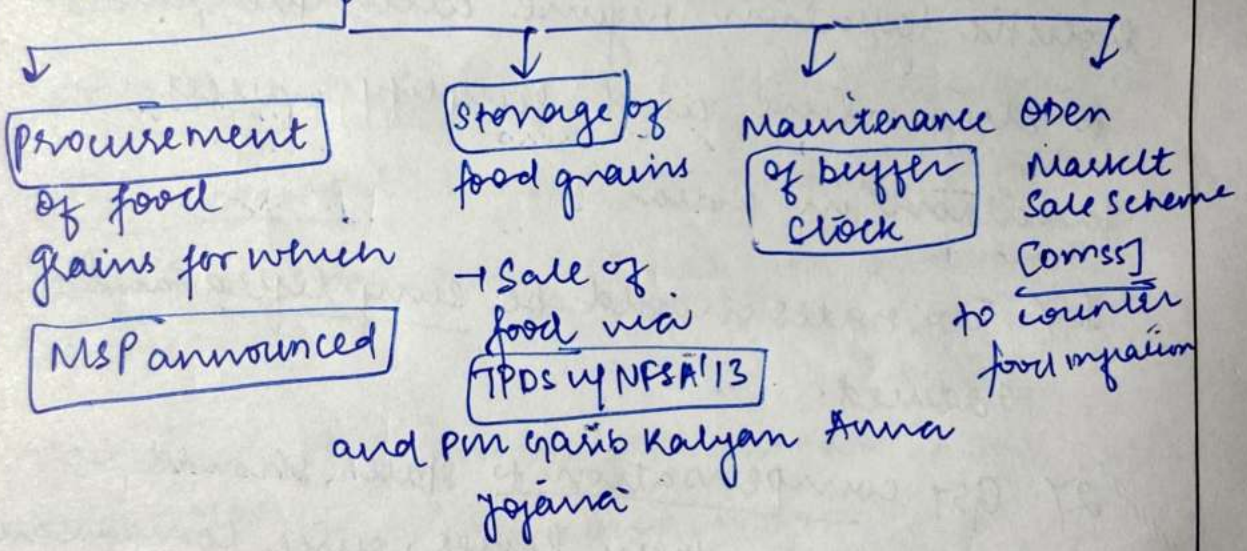 Procurement
of food
grains for which
MSP announced
Storage of
food grains
→ Sale of
food via
TPDS u/ NFSA'13
and PM Garib Kalyan Anna
Yojana
Maintenance
of buffer
stock
Open
Market
Sale Scheme
[OMSS]
to counter
food inflation